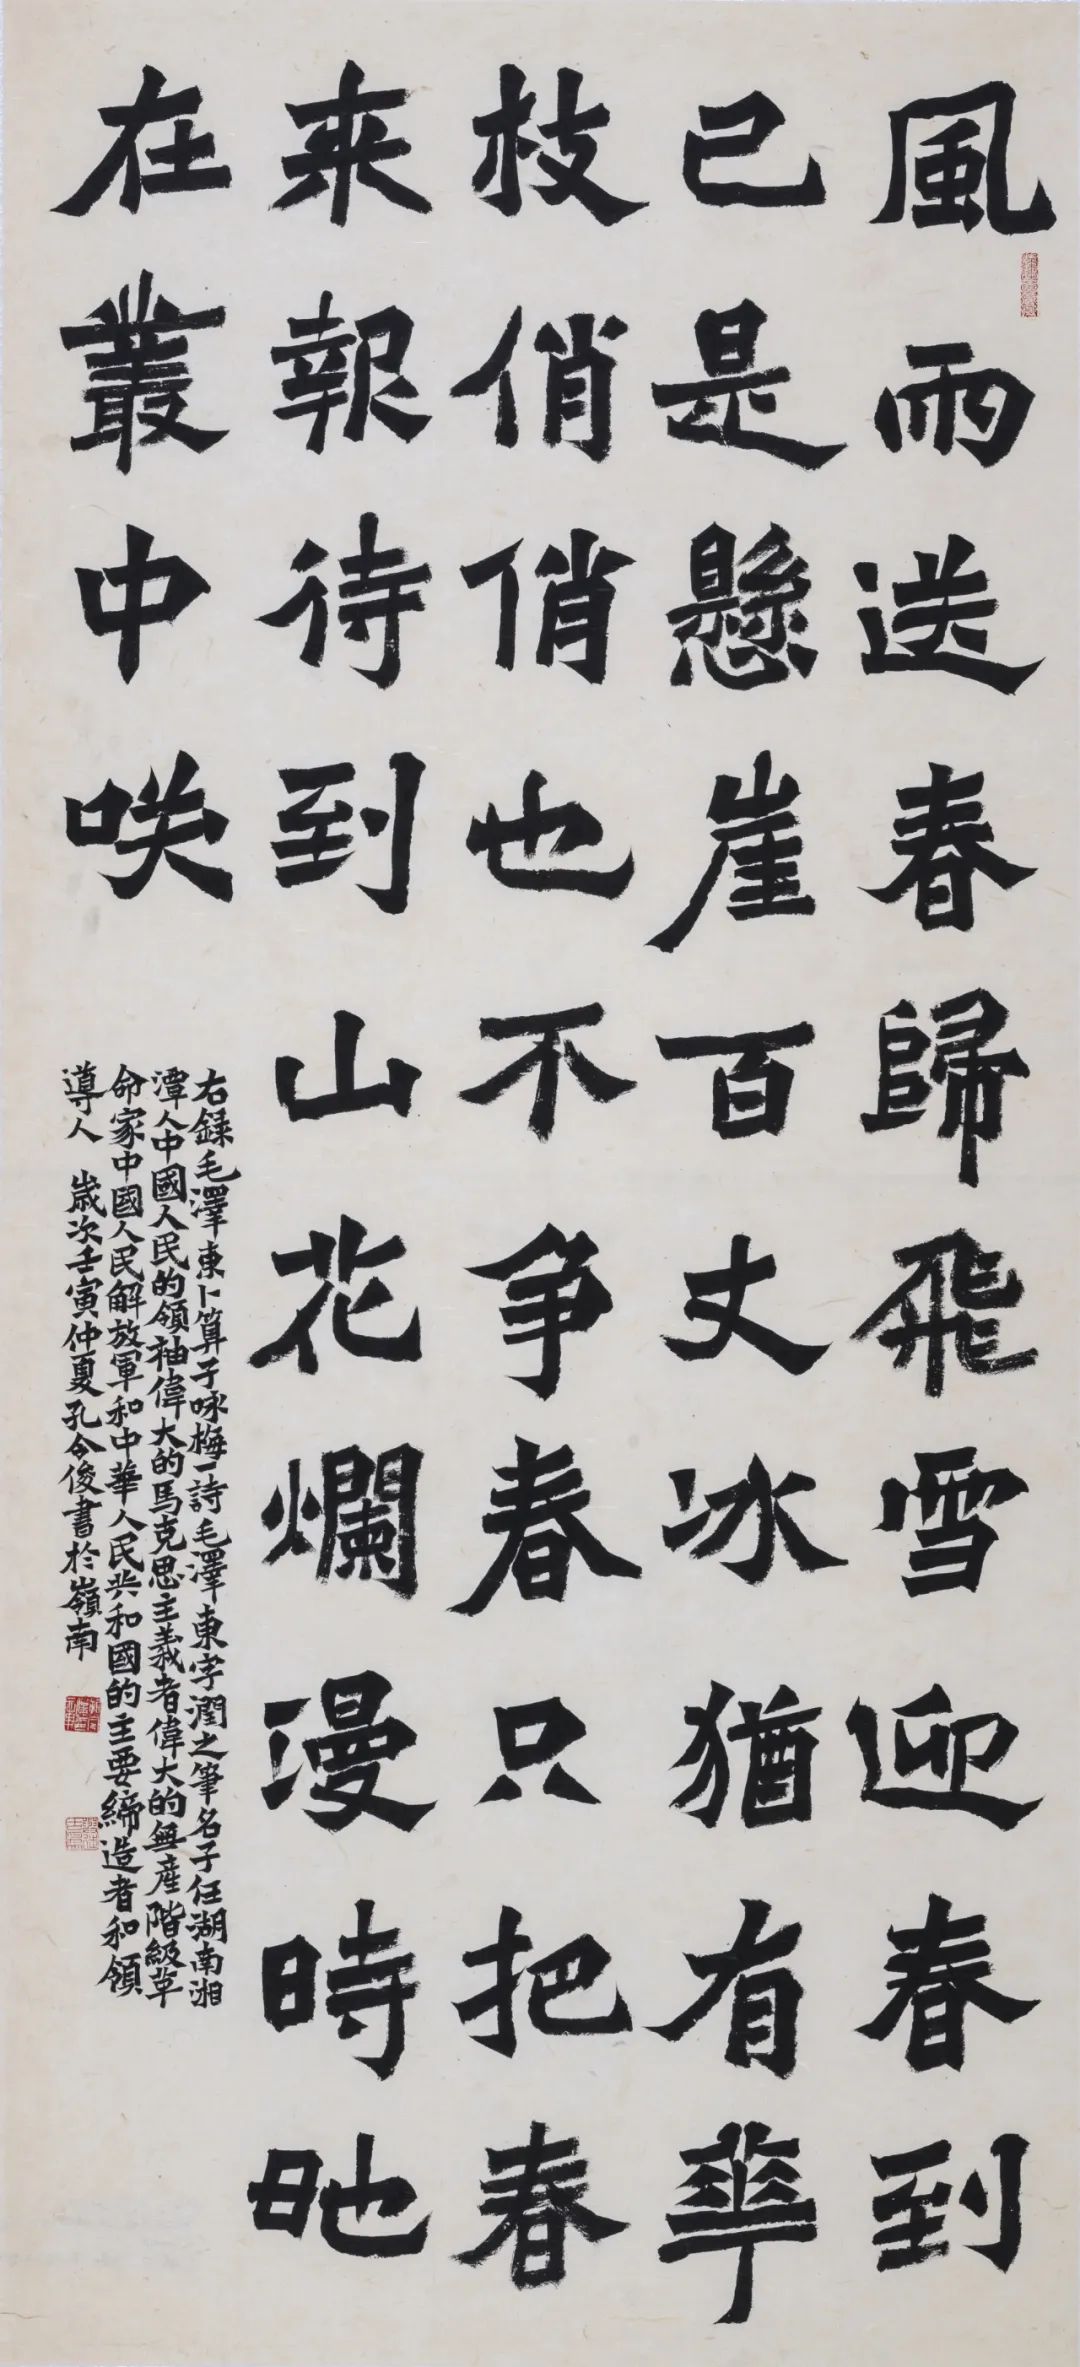 風雨送春歸飛雪迎春到
已是懸崖百丈冰猶有華
枝俏俏也不争春只把春
来報待到山花爛漫時她
在叢中咲
右録毛澤東卜算子咏梅一詩毛澤東字潤之筆名子任湖南湘
潭人中國人民的領袖偉大的馬克思主義者偉大的無産階級革
命家中國人民解放軍和中華人民共和國的主要締造者和領
導人 歲次壬寅仲夏孔令俊書於嶺南